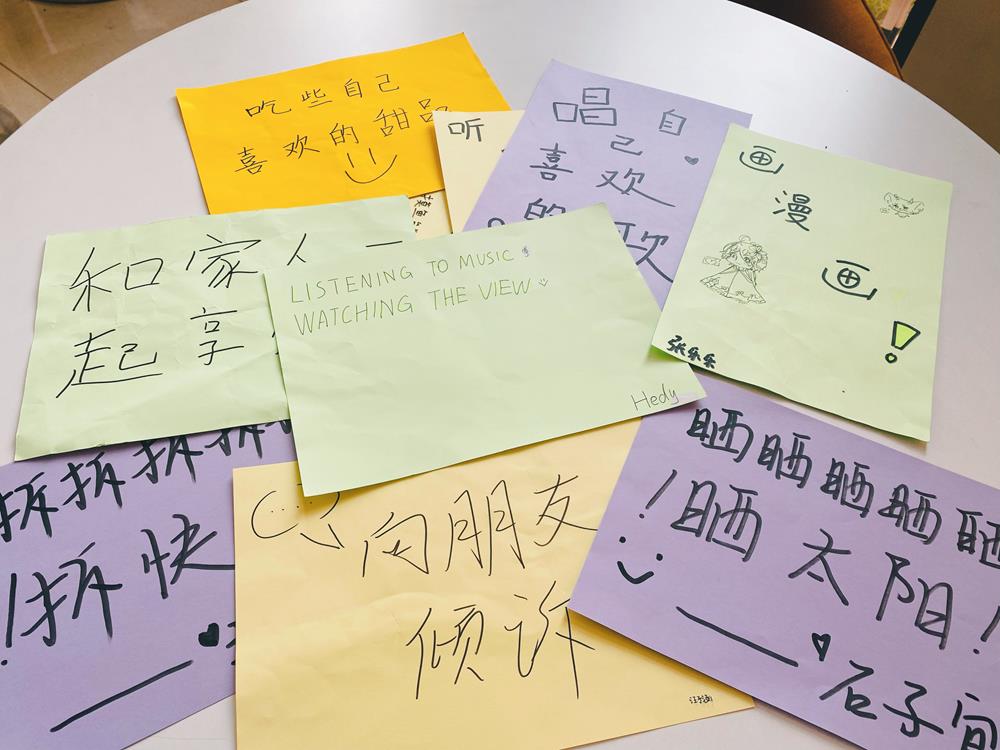 吃些自己
喜欢的甜品
听
唱自
己
喜欢
的
画
漫
画
!
张乐乐
和家人一
起享
LISTENING TO MUSIC
WATCHING THE VIEW
Hedy
拆拆拆拆
!拆快
向朋友
倾诉
晒晒晒晒晒
!晒太阳!
石子